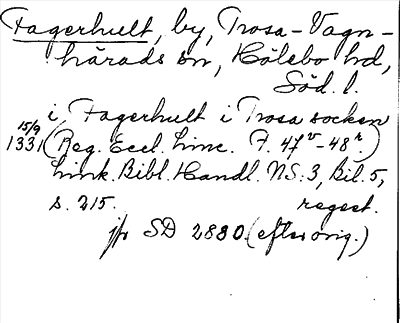 Fagerhult, by, Trosa-Vagn-
härads sn, Hölebo hd,
Söd. l.
i Fagerhult i Trosa socken
15/9
1331 (Reg. Eccl. Linc. F. 47v-48r)
Link. Bibl. Handl. NS:3, Bil. 5,
s. 215. regest.
jfr SD 2880 (efter orig.)